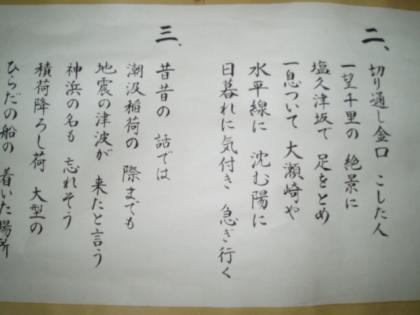 二、
切り通し金口 こした人
一望千里の 絶景に
塩久津坂で 足をとめ
一息ついて 大瀬崎や
水平線に 沈む陽に
日暮れに気付き 急ぎ行く
三、
昔昔の 話では
潮汲稲荷の 際までも
地震の津波が 来たと言う
神浜の名も 忘れそう
積荷降ろし荷 大型の
ひらだの船の 着いた場所